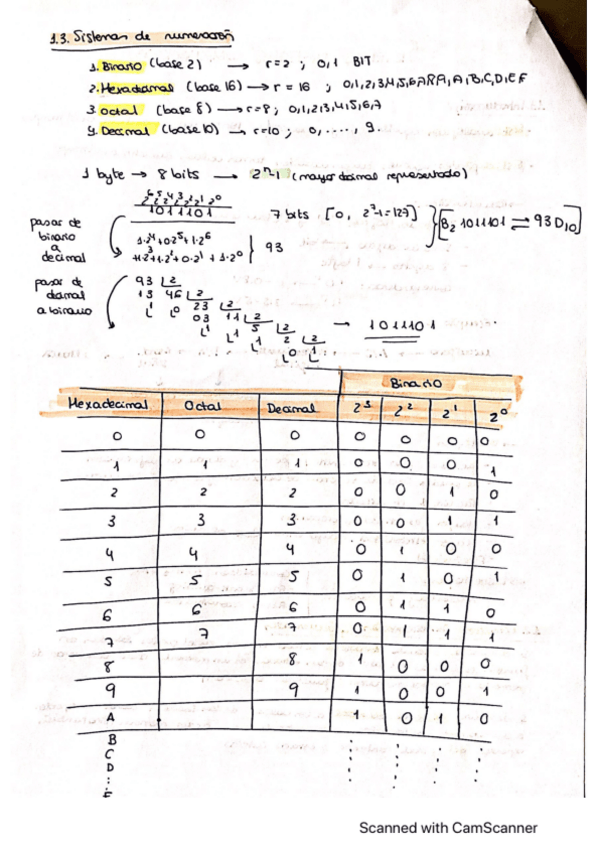 1.3. Sistemas de numeración
1. Binario (base 2) → r=2 ; 0,1 BIT
2. Hexadecimal (base 16) → r = 16 ; 0,1,2,3,4,5,6,7,8,9,A,B,C,D,E,F
3 Octal (base 8) → r=8 ; 0,1,2,3,4,5,6,7
4. Decimal (base 10) → r=10 ; 0, ...., 9.
1 byte → 8 bits → 2ⁿ-1 (mayor decimal representado)
2⁶2⁵2⁴2³2²2¹2⁰
1011101
7 bits [0, 2⁷-1=127)
B₂ 1011101 ⇌ 93 D₁₀
pasar de binario a decimal
93
pasar de decimal a binario
93 |2
13 46 |2
1 0 23 |2
03 11 |2
1 1 5 |2
1 2 |2
0 1
→ 1011101
Binario
Hexadecimal Octal Decimal 2³ 2² 2¹ 2⁰
0 0 0 0 0 0 0
1 1 1 0 0 0 1
2 2 2 0 0 1 0
3 3 3 0 0 1 1
4 4 4 0 1 0 0
5 5 5 0 1 0 1
6 6 6 0 1 1 0
7 7 7 0 1 1 1
8 8 1 0 0 0
9 9 1 0 0 1
A 1 0 1 0
B
C
D
⋮
F
Scanned with CamScanner